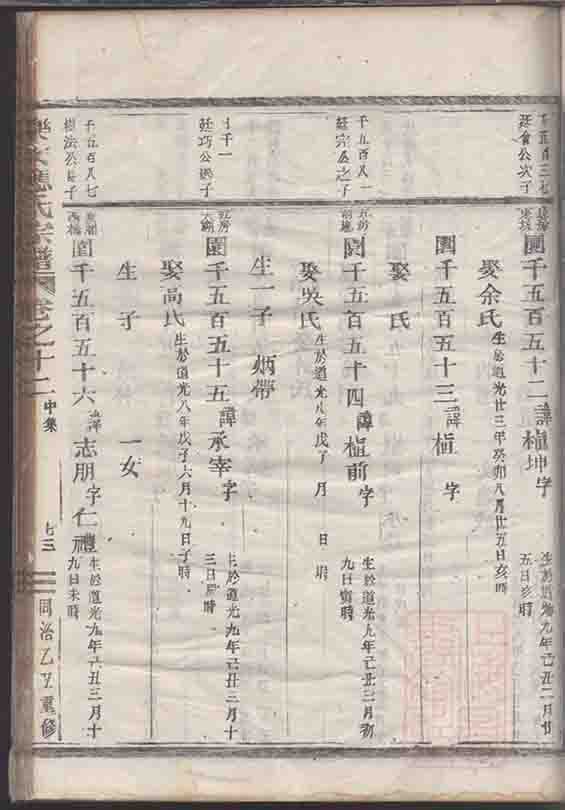 千五百三七
廷會公次子
園千五百五十二 諱楨坤 字
生於道光九年己丑二月廿
五日亥時
娶余氏 生於道光廿三年癸卯八月廿五日亥時
園千五百五十三 諱楨 字
娶 氏
千五百八一
園千五百五十四 諱楨前 字
生於道光九年己丑三月初
九日寅時
娶吳氏 生於道光八年戊子 月 日 時
生一子 炳帶
廷巧公 子
園千五百五十五 諱承宰 字
生於道光九年己丑三月十
三日 時
娶高氏 生於道光八年戊子六月十九日子時
生 子 一女
千五百八七
樹法公長子
園千五百五十六 諱志朋 字仁禮
生於道光九年己丑三月十
九日未時
應氏宗譜 卷之十二 中集 七三 同治乙丑重修